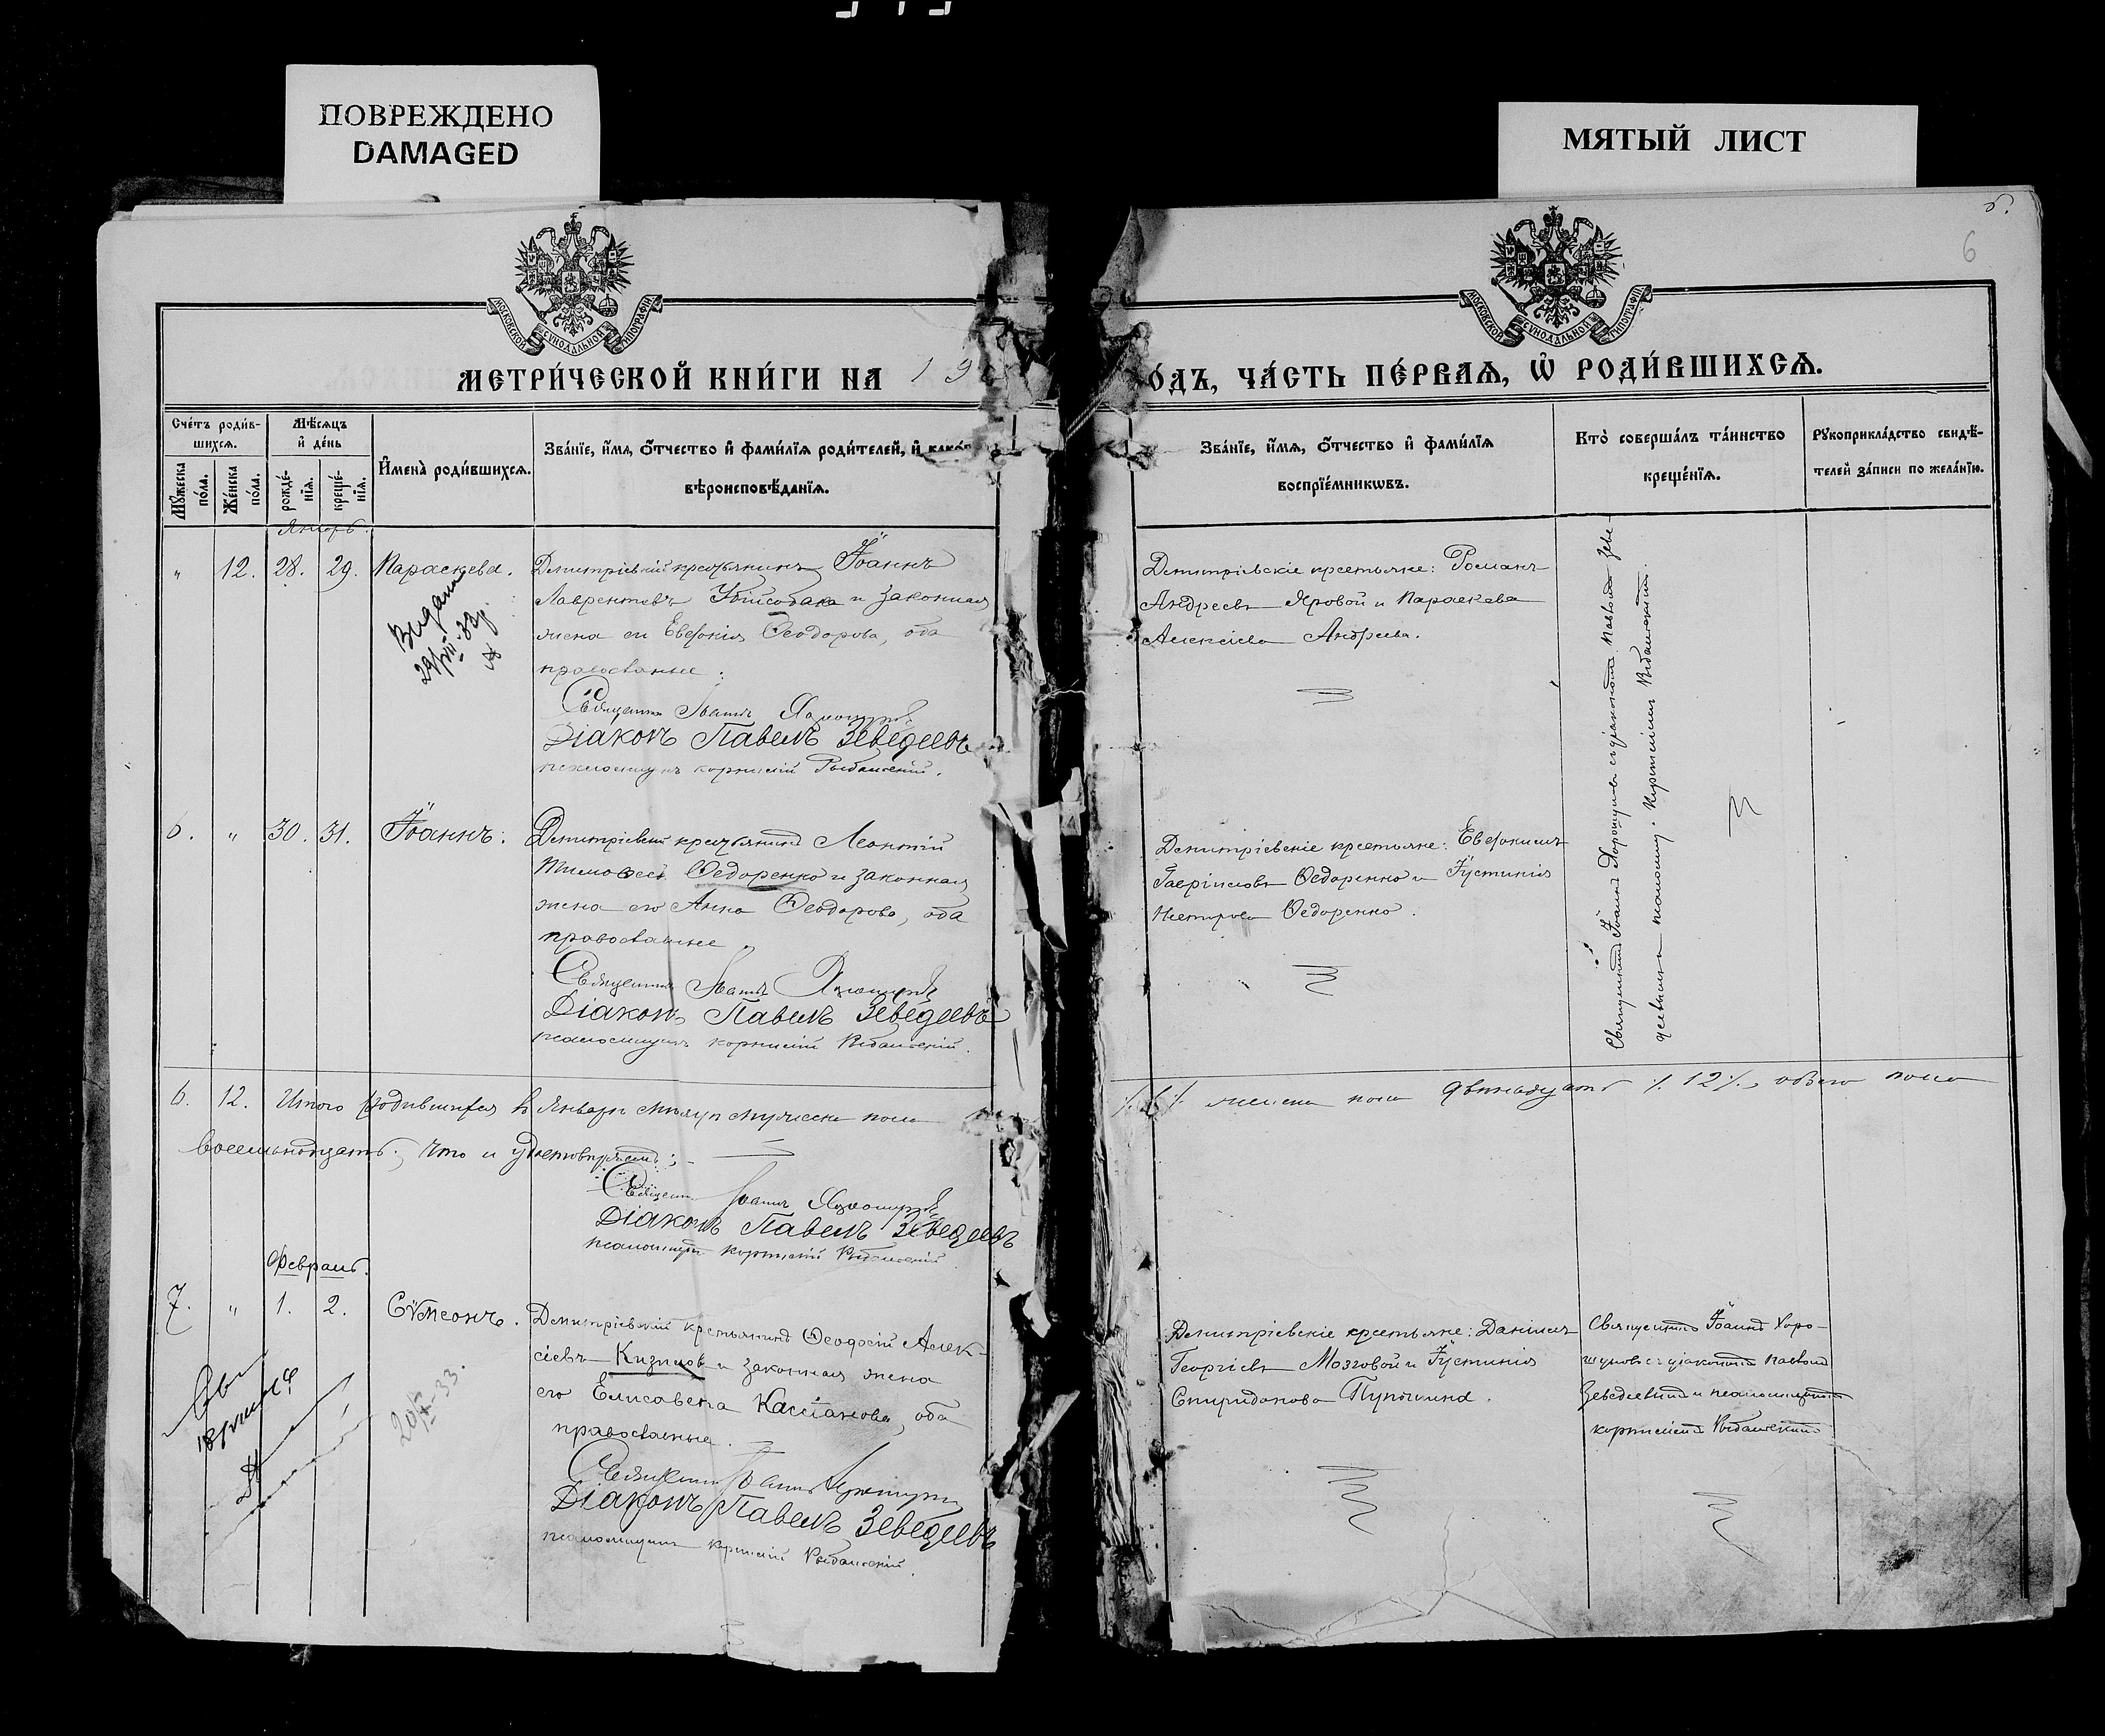 ПОВРЕЖДЕНО
DAMAGED
МЯТЫЙ ЛИСТ
6
МОСКОВСКОЙ СѴНОДАЛЬНОЙ ТИПОГРАФІИ
МОСКОВСКОЙ СѴНОДАЛЬНОЙ ТИПОГРАФІИ
МЕТРИ́ЧЕСКОЙ КНИ́ГИ НА 19
ОДЪ, ЧА́СТЬ ПЕ́РВАЯ, Ѽ РОДИ́ВШИХСЯ.
Сче́тъ роди́в-
шихся.
Мѣ́сяцъ
и҆ де́нь
Мꙋ́жеска по́ла.
Же́нска по́ла.
рожде́-
нїя.
креще́-
нїя.
И҆мена̀ роди́вшихся.
Зва́нїе, и҆́мя, ѻ҆́тчество и҆ фами́лїя роди́телей, и҆
вѣроисповѣ́данїя.
Зва́нїе, и҆́мя, ѻ҆́тчество и҆ фами́лїя
воспрїе́мникѡвъ.
Кто̀ соверша́лъ та́инство
креще́нїя.
Рꙋкоприкла́дство свидѣ́-
телей за́писи по жела́нїю.
Январь.
" 12. 28. 29. Параскева.
Димитріевскій крестьянинъ Іоаннъ
Лаврентьевъ Убійсобака и законная
жена его Евдокія Ѳеодорова, оба
православные.
Священникъ Іоаннъ
Діаконъ Павелъ Зеведеевъ
псаломщикъ Корнилій Рыбальскій.
Димитріевскіе крестьяне: Романъ
Андреевъ Яровой и Параскева
Алексіева Андреева.
Выдана
29/VIII-33 г
Священникъ Іоаннъ Хорошуновъ съ діакономъ Павломъ Зеве-
деевымъ и псаломщ. Корниліемъ Рыбальскимъ.
6. " 30. 31. Іоаннъ.
Димитріевскій крестьянинъ Леонтій
Тимоѳеевъ Ѳедоренко и законная
жена его Анна Ѳеодорова, оба
православные.
Священникъ Іоаннъ
Діаконъ Павелъ Зеведеевъ
псаломщикъ Корнилій Рыбальскій.
Димитріевскіе крестьяне: Евдокимъ
Гавріиловъ Ѳедоренко и Іустинія
Нестерова Ѳедоренко.
6. 12. Итого родившихся въ Январѣ мѣсяцѣ мужеска пола
/6/ женска пола двѣнадцать /12/, обоего пола
восемнадцать, что и удостовѣряемъ:
Священникъ Іоаннъ
Діаконъ Павелъ Зеведеевъ
псаломщикъ Корнилій Рыбальскій
Февраль.
7. " 1. 2. Сѵмеонъ.
Димитріевскій крестьянинъ Ѳеодосій Алек-
сіевъ Кизиловъ и законная жена
его Елисавета Кассіанова, оба
православные.
Священникъ Іоаннъ
Діаконъ Павелъ Зеведеевъ
псаломщикъ Корнилій Рыбальскій.
Димитріевскіе крестьяне: Даніилъ
Георгіевъ Мозговой и Іустинія
Спиридонова Пупычина.
Священникъ Іоаннъ Хоро-
шуновъ съ діакономъ Павломъ
Зеведеевымъ и псаломщикомъ
Корниліемъ Рыбальскимъ